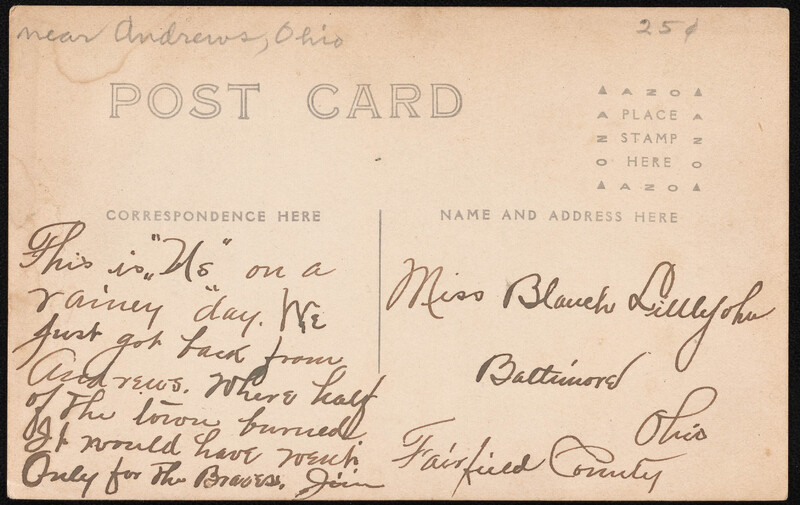 near Andrews, Ohio
25¢
POST CARD
AZO
PLACE
STAMP
HERE
AZO
CORRESPONDENCE HERE
NAME AND ADDRESS HERE
This is "Us" on a
rainey day. We
just got back from
Andrews. Where half
of the town burned
It would have went
Only for the Braves. Jim
Miss Blanch Littlejohn
Baltimore
Ohio
Fairfield County